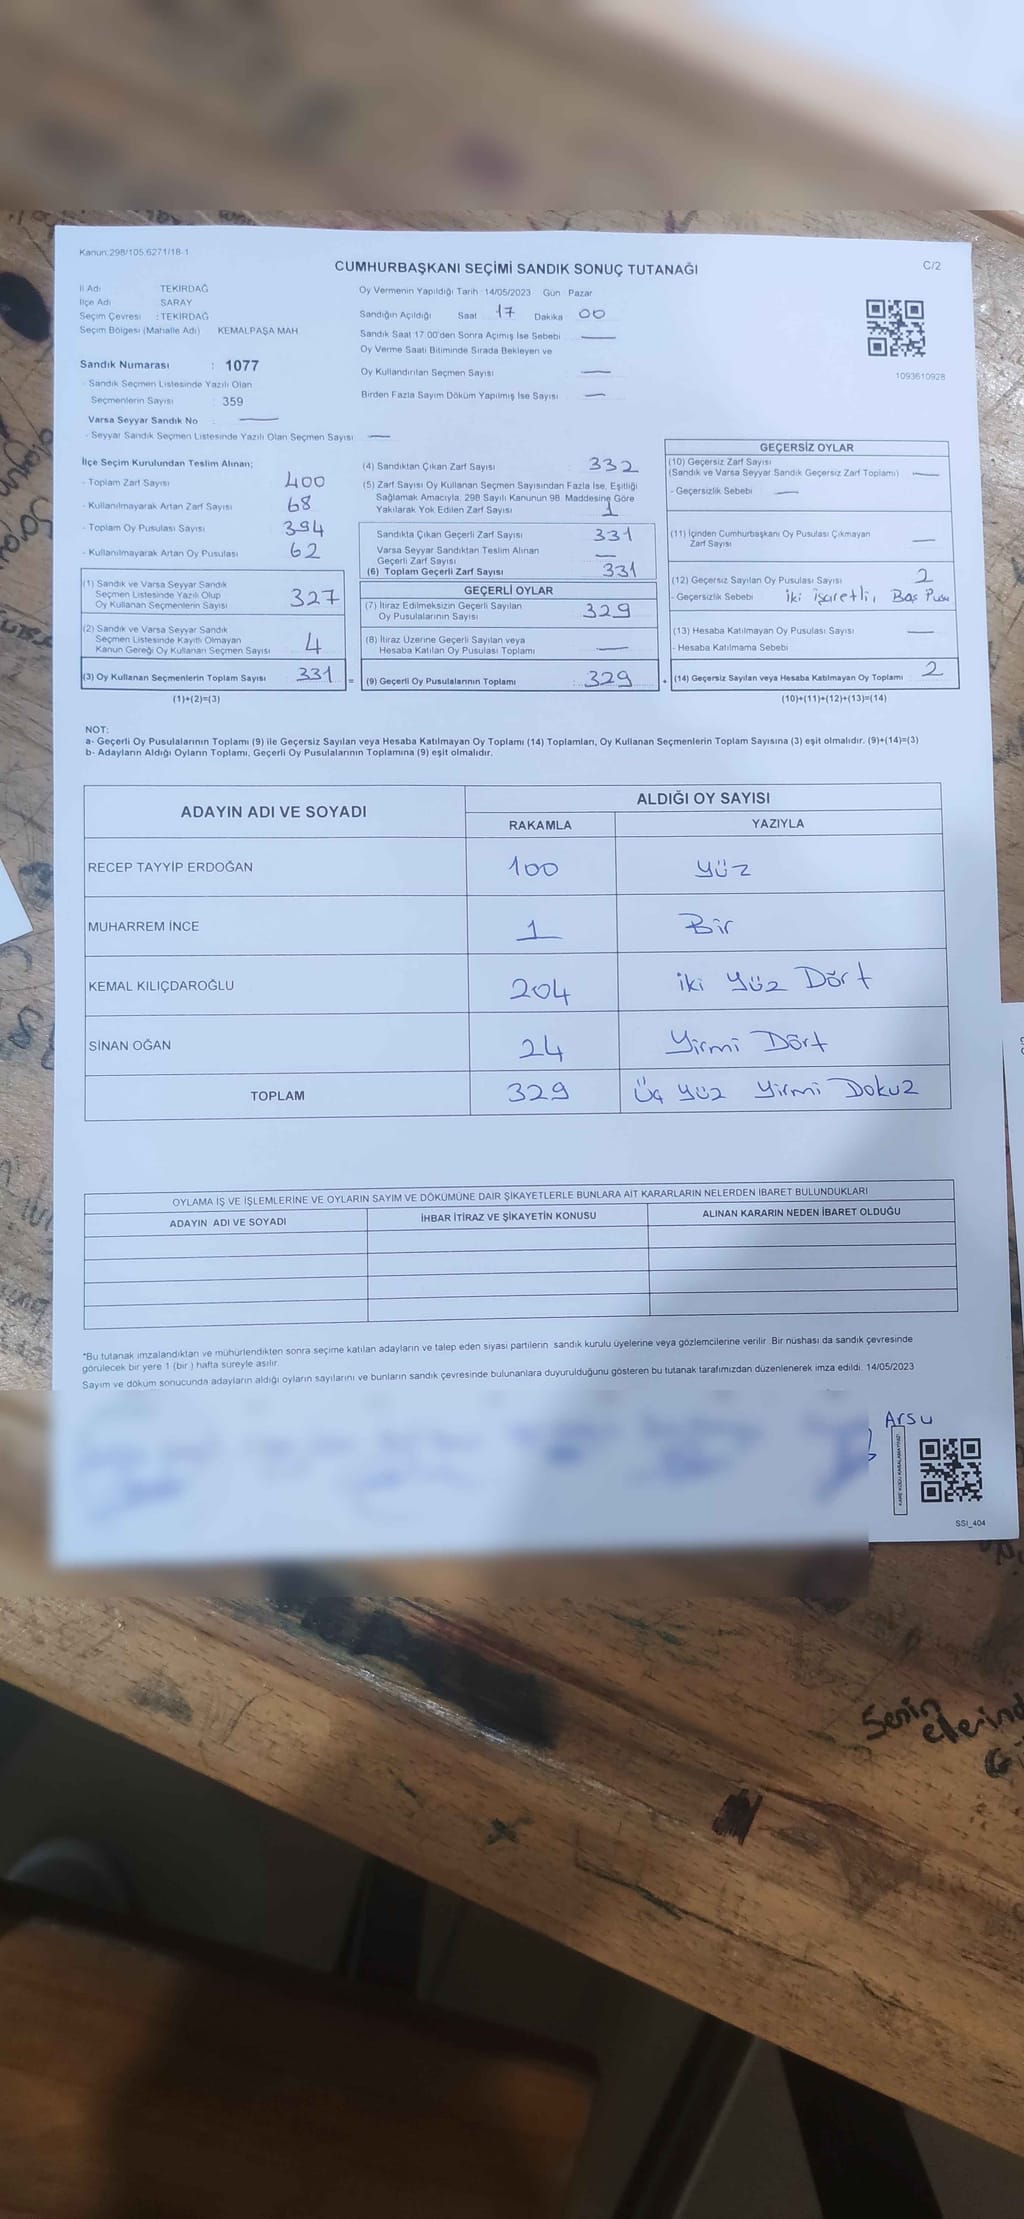 Kanun:298/105,6271/18-1
CUMHURBAŞKANI SEÇİMİ SANDIK SONUÇ TUTANAĞI
C/2
İl Adı TEKİRDAĞ
İlçe Adı SARAY
Seçim Çevresi : TEKİRDAĞ
Seçim Bölgesi (Mahalle Adı) KEMALPAŞA MAH
Sandık Numarası : 1077
- Sandık Seçmen Listesinde Yazılı Olan
Seçmenlerin Sayısı : 359
Varsa Seyyar Sandık No : —
- Seyyar Sandık Seçmen Listesinde Yazılı Olan Seçmen Sayısı —
Oy Vermenin Yapıldığı Tarih : 14/05/2023 Gün : Pazar
Sandığın Açıldığı Saat 17 Dakika 00
Sandık Saat 17:00'den Sonra Açımış İse Sebebi —
Oy Verme Saati Bitiminde Sırada Bekleyen ve
Oy Kullandırılan Seçmen Sayısı —
Birden Fazla Sayım Döküm Yapılmış İse Sayısı —
1093610928
İlçe Seçim Kurulundan Teslim Alınan;
- Toplam Zarf Sayısı 400
- Kullanılmayarak Artan Zarf Sayısı 68
- Toplam Oy Pusulası Sayısı 394
- Kullanılmayarak Artan Oy Pusulası 62
(1) Sandık ve Varsa Seyyar Sandık
Seçmen Listesinde Yazılı Olup
Oy Kullanan Seçmenlerin Sayısı 327
(2) Sandık ve Varsa Seyyar Sandık
Seçmen Listesinde Kayıtlı Olmayan
Kanun Gereği Oy Kullanan Seçmen Sayısı 4
(3) Oy Kullanan Seçmenlerin Toplam Sayısı 331 =
(1)+(2)=(3)
(4) Sandıktan Çıkan Zarf Sayısı 332
(5) Zarf Sayısı Oy Kullanan Seçmen Sayısından Fazla İse, Eşitliği
Sağlamak Amacıyla, 298 Sayılı Kanunun 98. Maddesine Göre
Yakılarak Yok Edilen Zarf Sayısı 1
Sandıkta Çıkan Geçerli Zarf Sayısı 331
Varsa Seyyar Sandıktan Teslim Alınan
Geçerli Zarf Sayısı —
(6) Toplam Geçerli Zarf Sayısı 331
GEÇERLİ OYLAR
(7) İtiraz Edilmeksizin Geçerli Sayılan
Oy Pusulalarının Sayısı 329
(8) İtiraz Üzerine Geçerli Sayılan veya
Hesaba Katılan Oy Pusulası Toplamı —
(9) Geçerli Oy Pusulalarının Toplamı : 329 +
GEÇERSİZ OYLAR
(10) Geçersiz Zarf Sayısı
(Sandık ve Varsa Seyyar Sandık Geçersiz Zarf Toplamı) —
- Geçersizlik Sebebi —
(11) İçinden Cumhurbaşkanı Oy Pusulası Çıkmayan
Zarf Sayısı —
(12) Geçersiz Sayılan Oy Pusulası Sayısı 2
- Geçersizlik Sebebi iki işaretli, Boş Pusu
(13) Hesaba Katılmayan Oy Pusulası Sayısı —
- Hesaba Katılmama Sebebi
(14) Geçersiz Sayılan veya Hesaba Katılmayan Oy Toplamı 2
(10)+(11)+(12)+(13)=(14)
NOT:
a- Geçerli Oy Pusulalarının Toplamı (9) ile Geçersiz Sayılan veya Hesaba Katılmayan Oy Toplamı (14) Toplamları, Oy Kullanan Seçmenlerin Toplam Sayısına (3) eşit olmalıdır. (9)+(14)=(3)
b- Adayların Aldığı Oyların Toplamı, Geçerli Oy Pusulalarının Toplamına (9) eşit olmalıdır.
ADAYIN ADI VE SOYADI ALDIĞI OY SAYISI
RAKAMLA YAZIYLA
RECEP TAYYİP ERDOĞAN 100 yüz
MUHARREM İNCE 1 Bir
KEMAL KILIÇDAROĞLU 204 iki yüz Dört
SİNAN OĞAN 24 Yirmi Dört
TOPLAM 329 Üç yüz yirmi Dokuz
OYLAMA İŞ VE İŞLEMLERİNE VE OYLARIN SAYIM VE DÖKÜMÜNE DAİR ŞİKAYETLERLE BUNLARA AİT KARARLARIN NELERDEN İBARET BULUNDUKLARI
ADAYIN ADI VE SOYADI İHBAR İTİRAZ VE ŞİKAYETİN KONUSU ALINAN KARARIN NEDEN İBARET OLDUĞU
*Bu tutanak imzalandıktan ve mühürlendikten sonra seçime katılan adayların ve talep eden siyasi partilerin sandık kurulu üyelerine veya gözlemcilerine verilir. Bir nüshası da sandık çevresinde
görülecek bir yere 1 (bir ) hafta süreyle asılır.
Sayım ve döküm sonucunda adayların aldığı oyların sayılarını ve bunların sandık çevresinde bulunanlara duyurulduğunu gösteren bu tutanak tarafımızdan düzenlenerek imza edildi. 14/05/2023
Arsu
KARE KODU KARALAMAYINIZ!
SSI_404
Senin
elerind